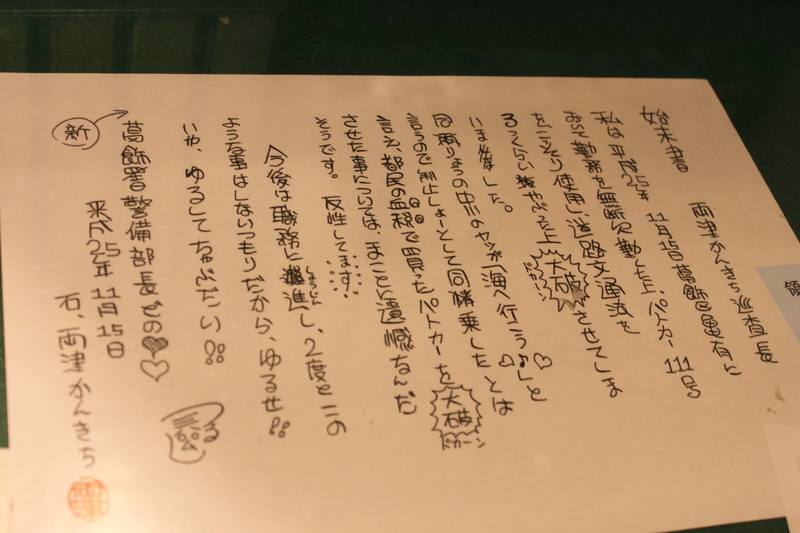 始末書
両津かんきち巡査長
私は平成25年11月15日葛飾区亀有に
おいて勤務を無断欠勤した上、パトカー111号
をこっそり使用し、道路交通法を
るっくらいやぶった上大破させてしま
いました。
同両りょうの中川のヤツが「海へ行こう♪」と
言うので阻止しょーとして同乗したとは
言え、都民の血税で買ったパトカーを大破
させた事については、まこと遺憾なんだ
そうです。反性してます。
今後は職務に進し、2度とこの
しょうじん
ような事はしないつもりだから、ゆるせ!!
いや、ゆるしてちゃぶだい!!
新
葛飾署警備部長どの
平成25年11月15日
右、両津かんきち
領